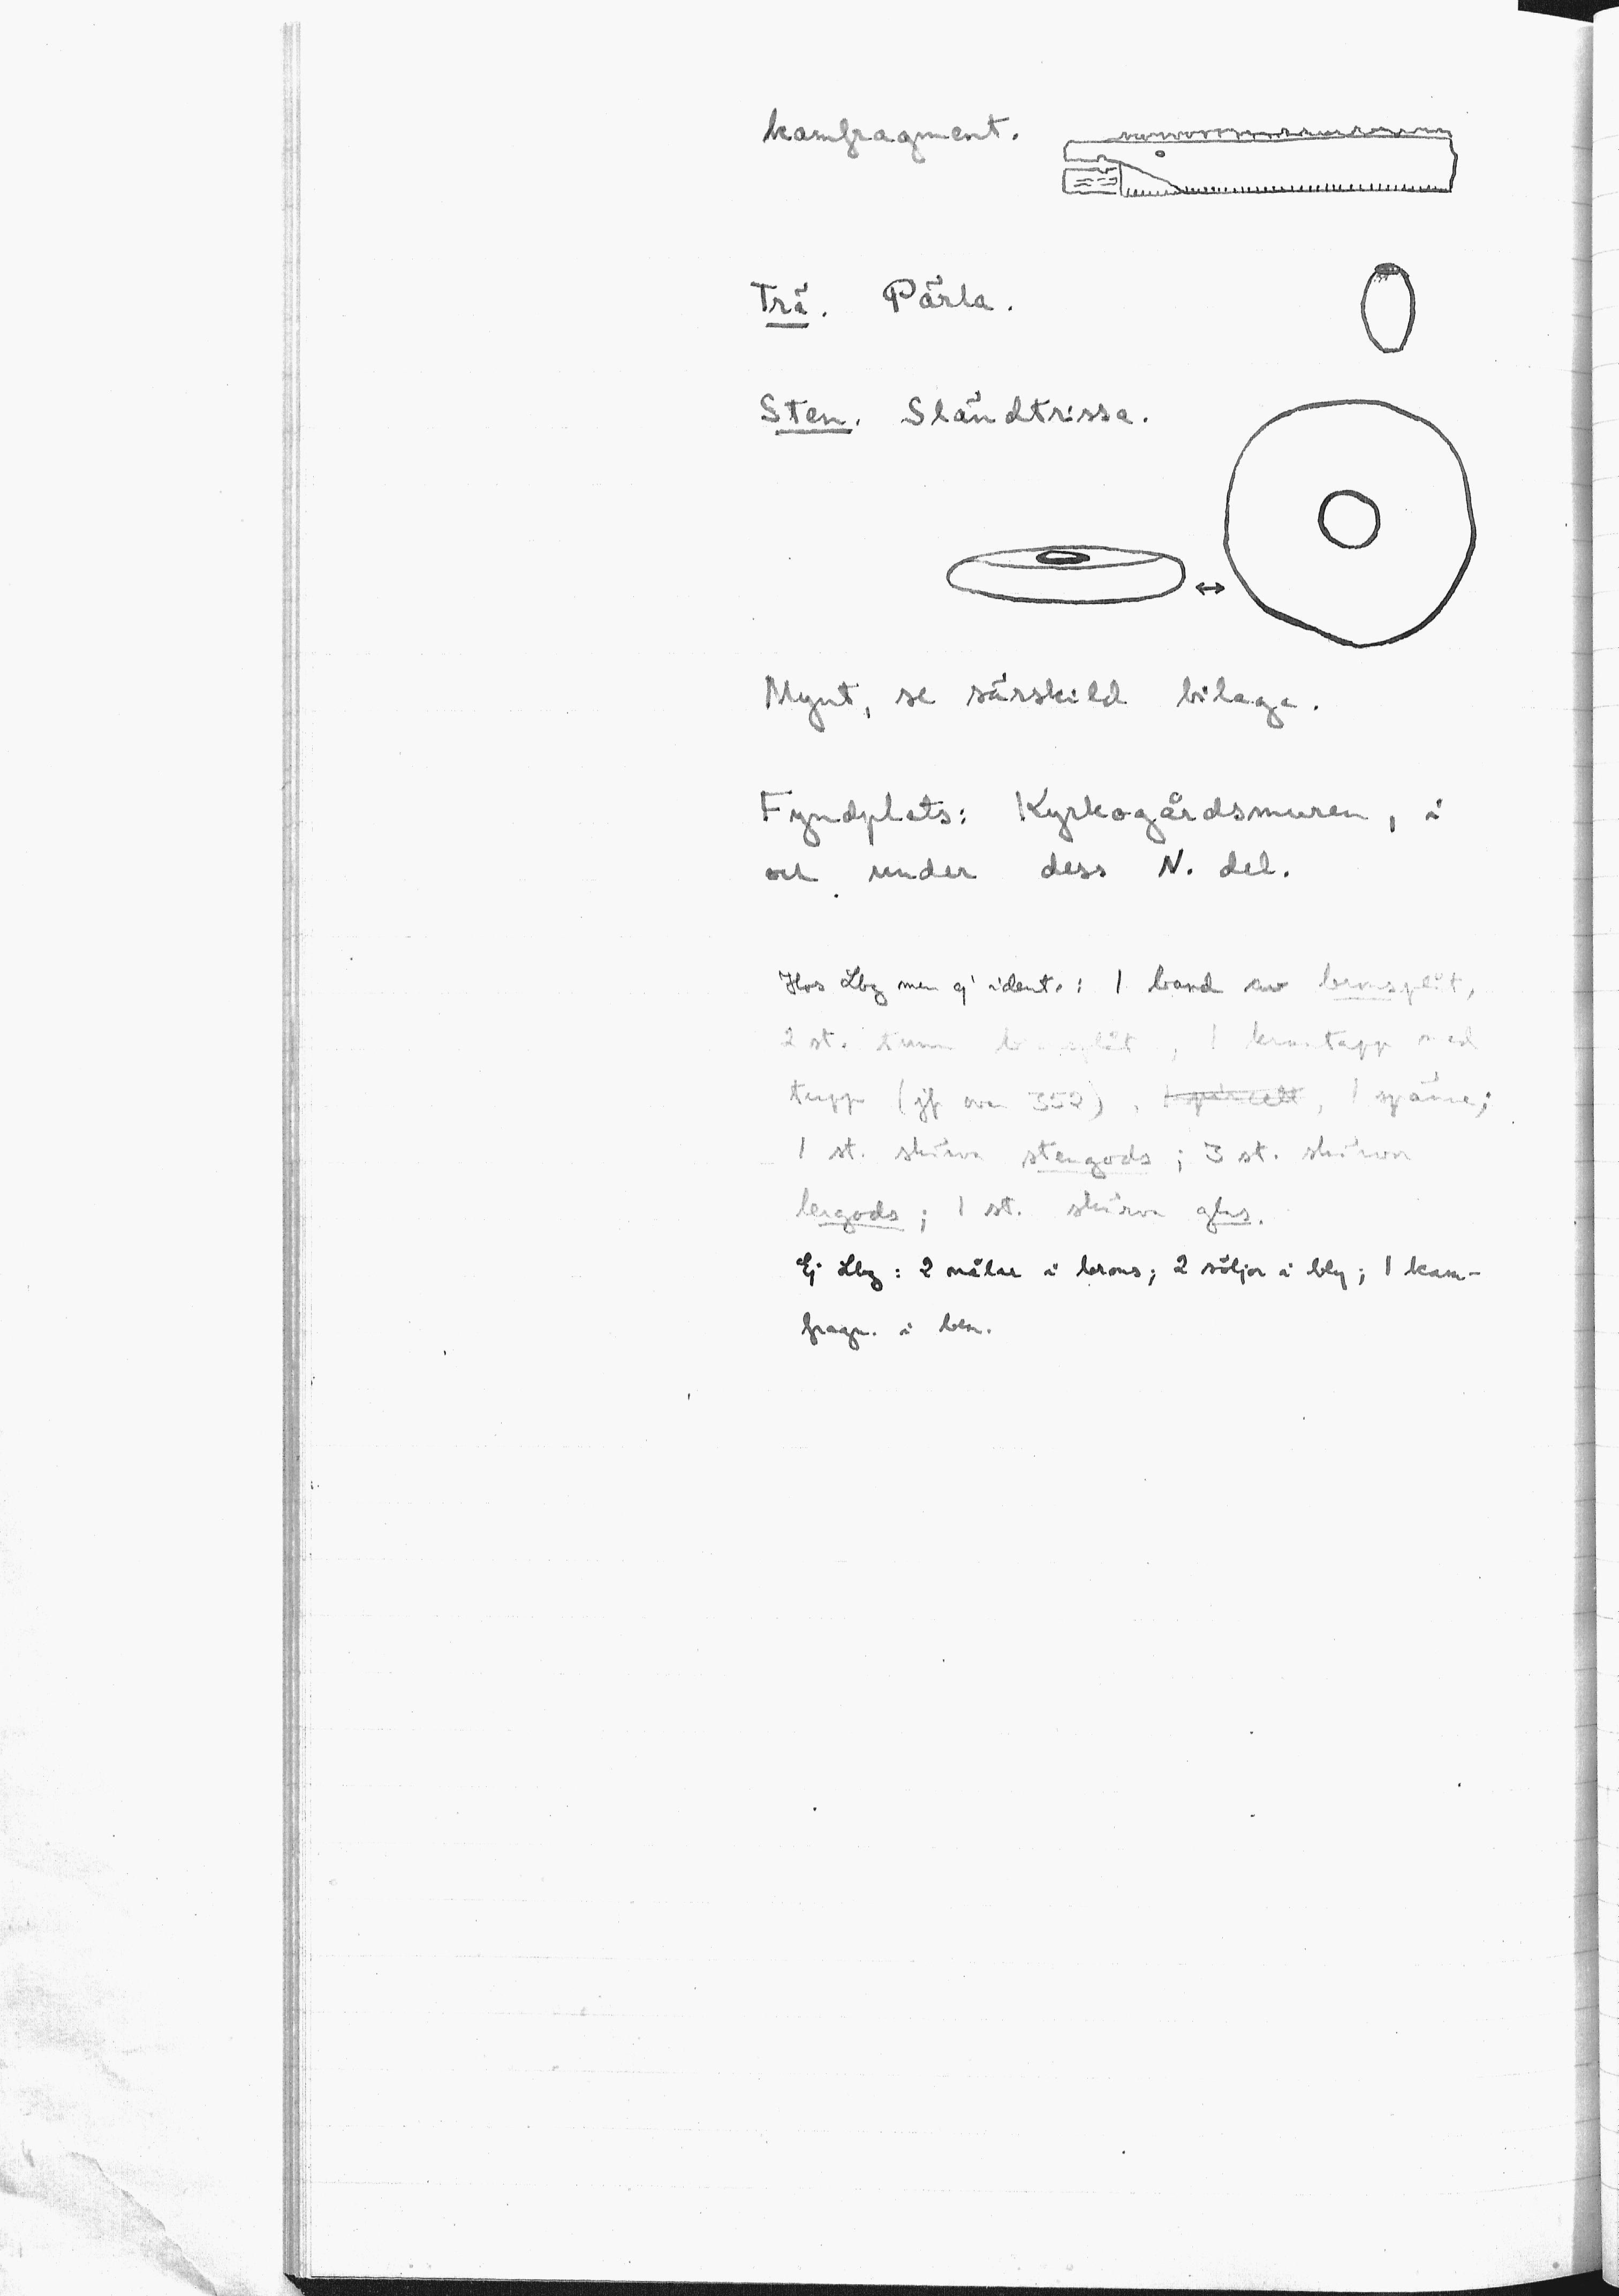 kamfragment.
Trä. Pärla.
Sten. Sländtrissa.
Mynt, se särskild bilaga.
Fyndplats: Kyrkogårdsmuren, i
och under dess N. del.
Hos Lbg men ej ident.: 1 band av bronsplåt,
2 st. tunn bronsplåt, 1 krantapp med
tupp (jfr ovan 352), 1 spänne;
1 st. skärva stengods; 3 st. skärvor
lergods; 1 st. skärva glas.
Ej Lbg: 2 nålar i brons; 2 söljor i bly; 1 kam-
fragm. i ben.